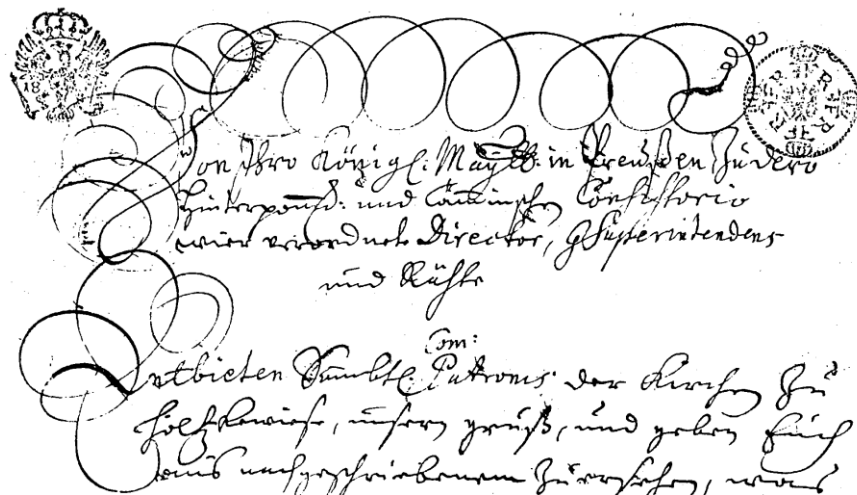 Von Ihro Königl: Maytt: in Preußen, Zu dero
Hinterpomd: und Caminschen Consistorio
wier verordnete Director, GSuperintendens
und Rähte
Com:
Entbieten Sämbtl: Patronis der Kirchen Zu
Holtzkewiese, unsern gruß, und geben Euch
aus nachgeschriebenem Zuersehen, was